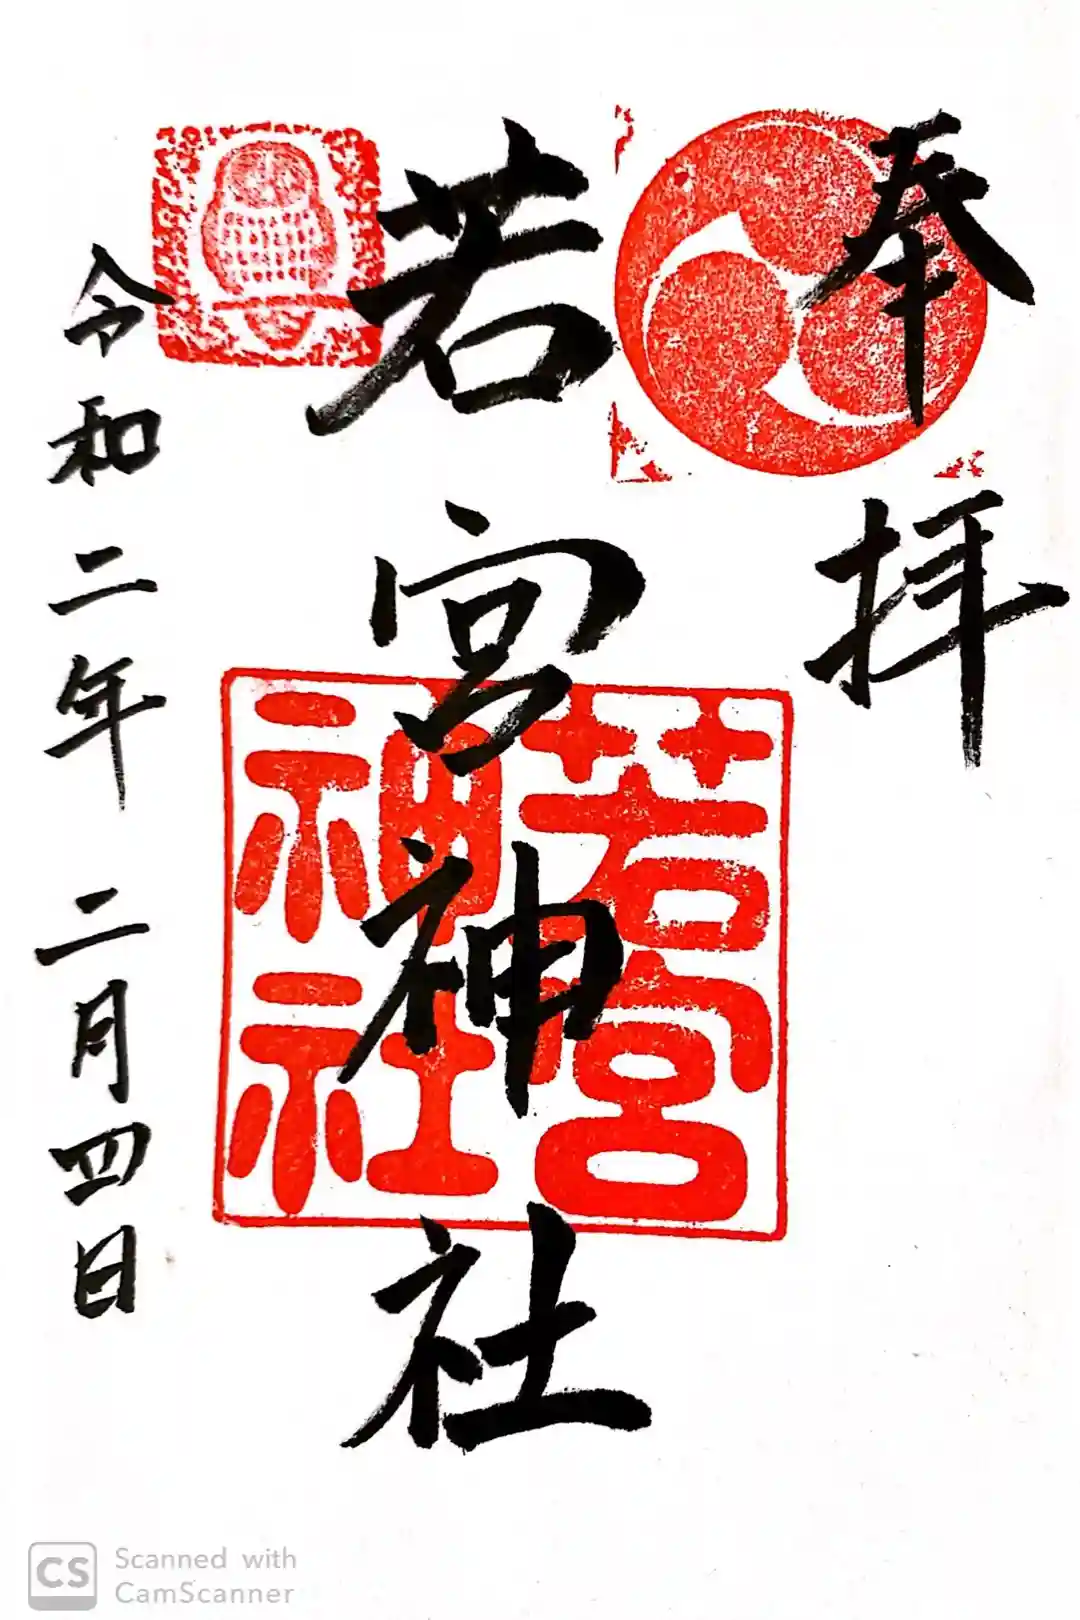 奉拝
若宮神社
令和二年二月四日
若宮
神社
CS
Scanned with
CamScanner